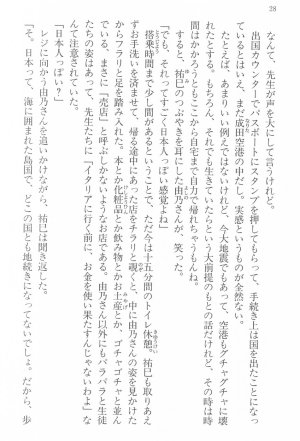 28
なんて、先生が声を大にして言うけれど。
出国カウンターでパスポートにスタンプを押してもらって、手続き上は国を出たことになっ
ているとはいえ、まだ成田空港の中だし。実感というものが全然ない。
たとえば、あまりいい例えではないけれど、今大地震でもあって、空港もグチャグチャに壊
れたとする。もちろん、それでも生きていたらという大前提のもとの話だけれど、その時は時
間はかかろうともここから自宅まで自力で帰れちゃうもんね。
すると、祐巳のつぶやきを耳にした由乃さんが、笑った。
「でも、それってすごく日本人っぽい感覚よね」
搭乗時間まで少し間があるということで、ただ今は十五分間のトイレ休憩。祐巳も取りあえ
ずお手洗いを済ませて、帰る途中にあった店をチラリと覗くと、中に由乃さんの姿を見かけた
からフラリと足を踏み入れた。本とか化粧品とか飲み物とかお土産とか、ゴチャゴチャと並ん
でいる、まさに「売店」と呼ぶしかないようなお店である。由乃さん以外にもパラパラと生徒
たちの姿はあって、先生たちに「イタリアに行く前に、お金を使い果たすんじゃないわよ」な
んて注意されていた。
「日本人っぽい?」
レジに向かう由乃さんを追いかけながら、祐巳は聞き返した。
「そ。日本って、海に囲まれた島国で、どこの国とも地続きになってないでしょ。だから、歩